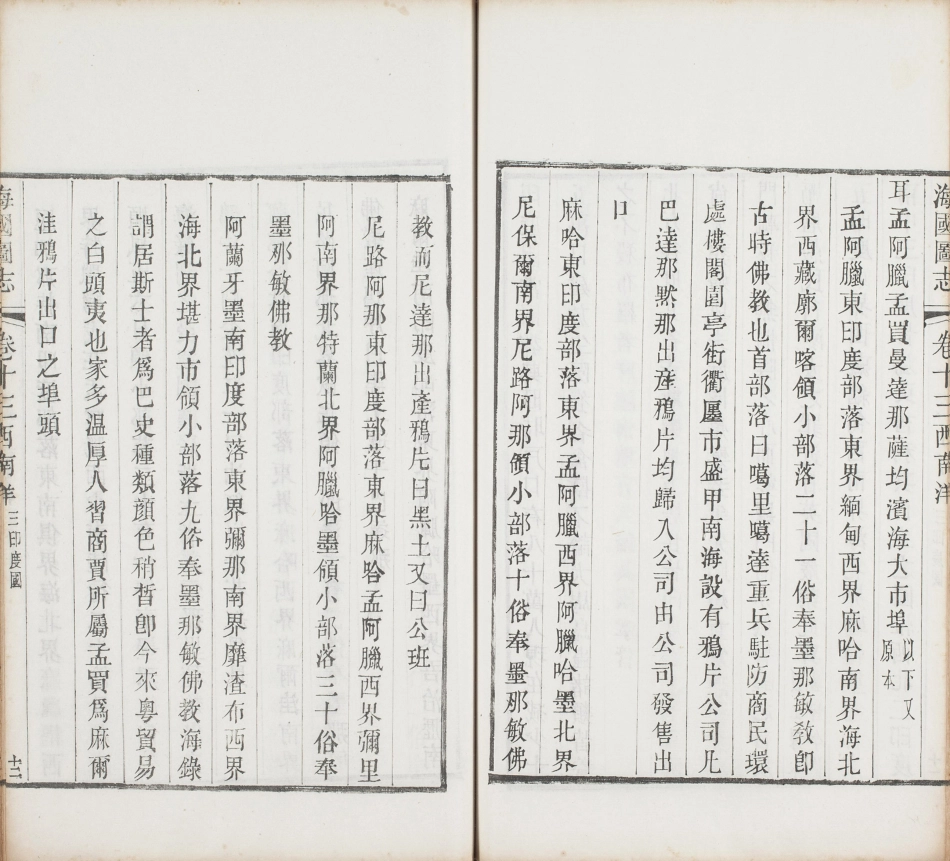 海國圖志
卷十三西南洋
耳孟阿臘孟買曼達那薩均濱海大市埠以下又原本
孟阿臘東印度部落東界緬甸西界麻哈南界海北
界西藏廓爾喀領小部落二十一俗奉墨那敏教卽
古時佛教也首部落曰噶里噶達重兵駐防商民環
處樓閣園亭街衢廛市盛甲南海設有鴉片公司凡
巴達那黙那出產鴉片均歸入公司由公司發售出
口
麻哈東印度部落東界孟阿臘西界阿臘哈墨北界
尼保爾南界尼路阿那領小部落十俗奉墨那敏佛
教而尼達那出產鴉片曰黑土又曰公班
尼路阿那東印度部落東界麻哈孟阿臘西界彌里
阿南界那特蘭北界阿臘哈墨領小部落三十俗奉
墨那敏佛教
阿蘭牙墨南印度部落東界彌那南界靡渣布西界
海北界堪力市領小部落九俗奉墨那敏佛教海錄
謂居斯土者爲巴史種類顏色稍晳卽今來粵貿易
之白頭夷也家多温厚人習商賈所屬孟買爲麻爾
洼鴉片出口之埠頭
海國圖志
卷十三西南洋三印度國
十二